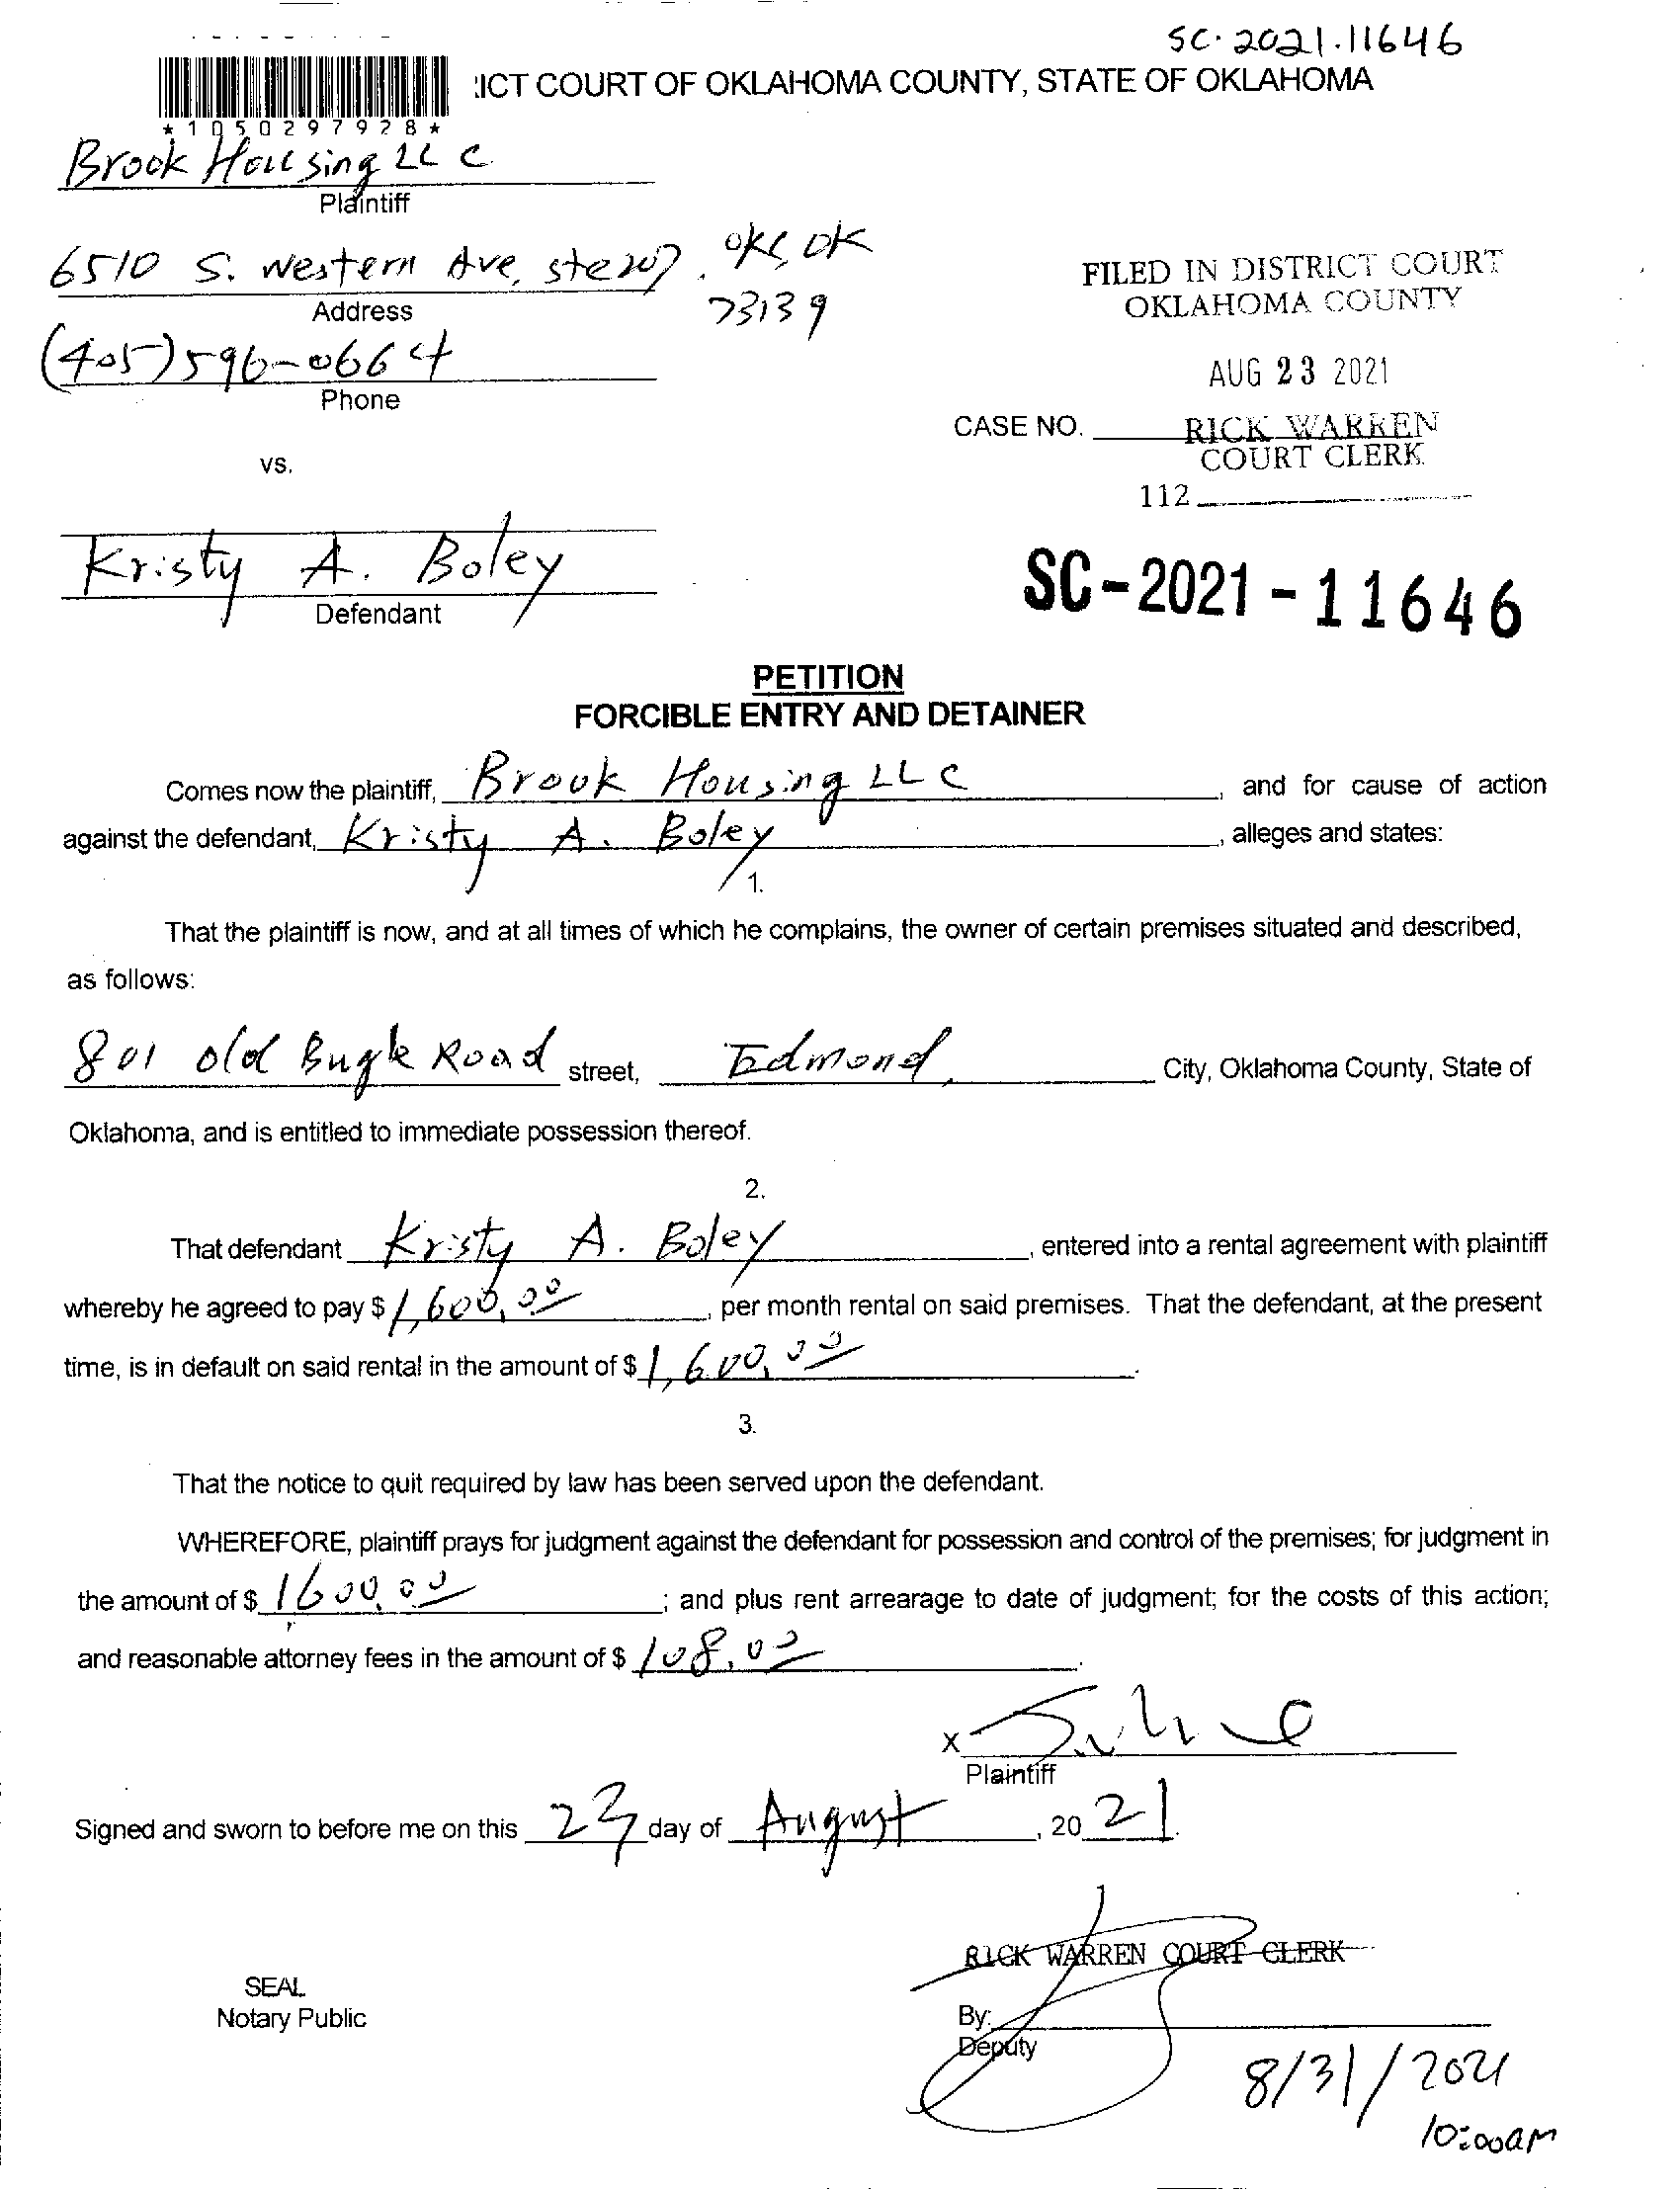 SC-2021-11646
ICT COURT OF OKLAHOMA COUNTY, STATE OF OKLAHOMA
*1050297928*
Brook Housing LLC
Plaintiff
6510 S. Western Ave, ste 207, OKC, OK
73139
Address
(405)596-0664
Phone
FILED IN DISTRICT COURT
OKLAHOMA COUNTY
AUG 23 2021
CASE NO. RICK WARREN
COURT CLERK
112
vs.
Kristy A. Boley
Defendant
SC-2021-11646
PETITION
FORCIBLE ENTRY AND DETAINER
Comes now the plaintiff, Brook Housing LLC, and for cause of action
against the defendant, Kristy A. Boley, alleges and states:
1.
That the plaintiff is now, and at all times of which he complains, the owner of certain premises situated and described,
as follows:
801 old Bugle Road street, Edmond, City, Oklahoma County, State of
Oklahoma, and is entitled to immediate possession thereof.
2.
That defendant Kristy A. Boley, entered into a rental agreement with plaintiff
whereby he agreed to pay $ 1,600.00, per month rental on said premises. That the defendant, at the present
time, is in default on said rental in the amount of $ 1,600.00.
3.
That the notice to quit required by law has been served upon the defendant.
WHEREFORE, plaintiff prays for judgment against the defendant for possession and control of the premises; for judgment in
the amount of $ 1,600.00; and plus rent arrearage to date of judgment; for the costs of this action;
and reasonable attorney fees in the amount of $ 108.00.
X
Plaintiff
Signed and sworn to before me on this 23 day of August, 2021.
RICK WARREN COURT CLERK
SEAL
Notary Public
By:
Deputy
8/31/2021
10:00AM